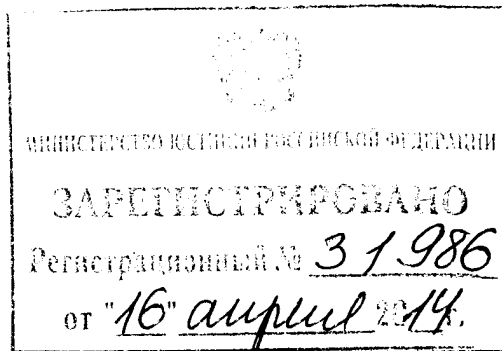 МИНИСТЕРСТВО ЮСТИЦИИ РОССИЙСКОЙ ФЕДЕРАЦИИ
ЗАРЕГИСТРИРОВАНО
Регистрационный № 31986
от "16" апреля 2014 г.